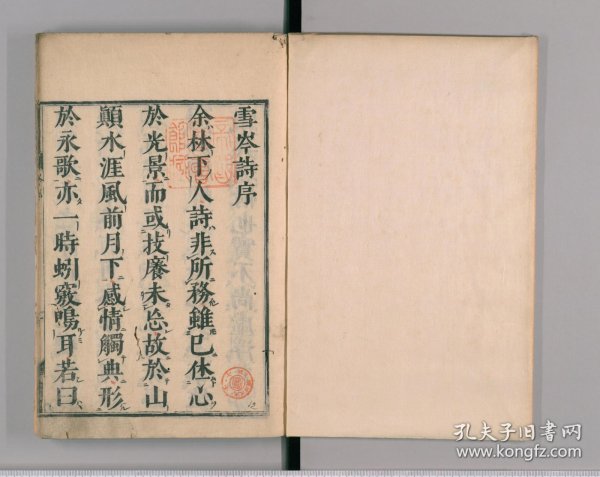 雪岑詩序
余林下人詩非所務雖已休心
於光景而或技癢未忘故於山
顛水涯風前月下感情觸典形
於永歌亦一時蚓竅鳴耳若曰
孔夫子旧书网
www.kongfz.com